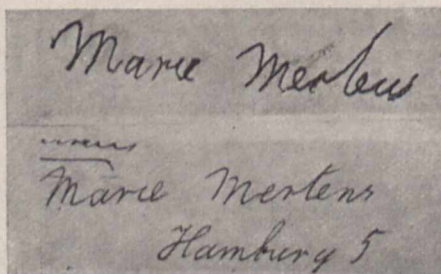 Marie Mertens
Marie Mertens
Hamburg 5